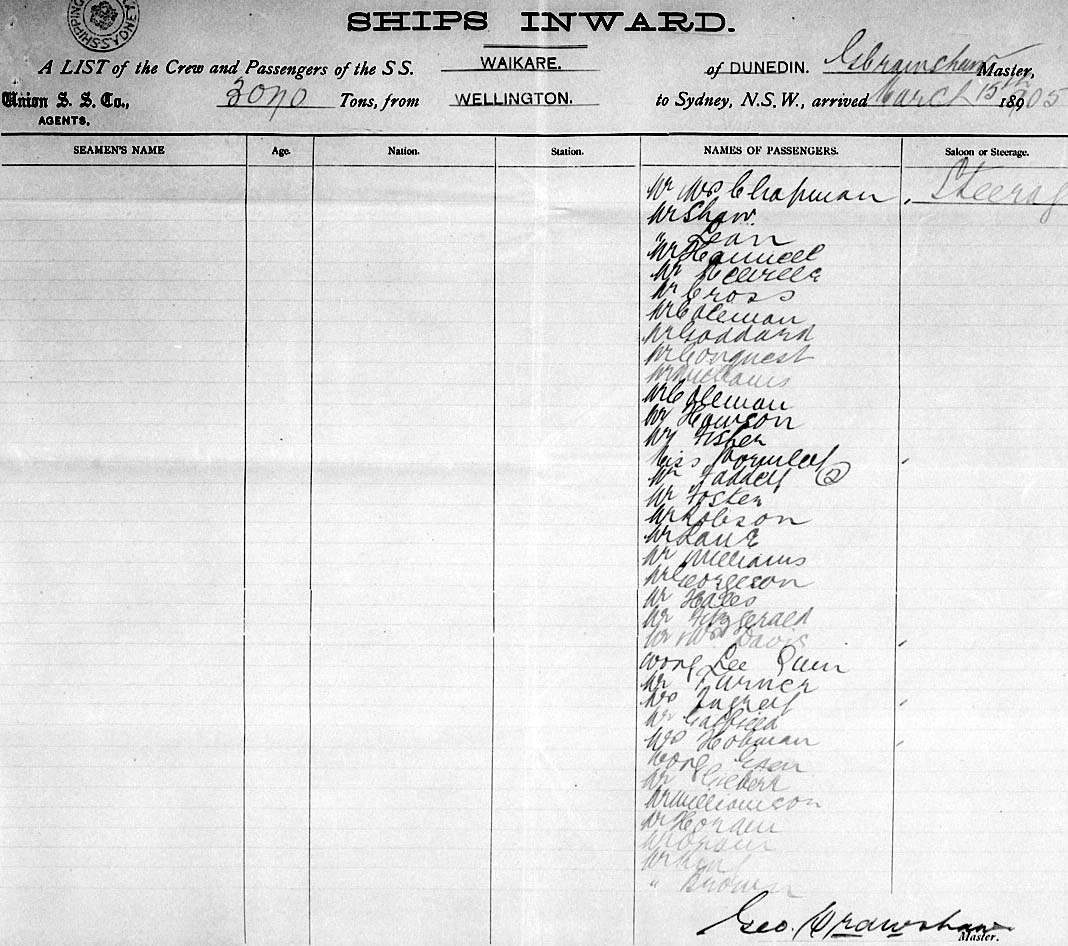 SHIPPING
SHIPS INWARD.
A LIST of the Crew and Passengers of the S S. WAIKARE. of DUNEDIN. G Crawshaw Master,
Union S. S. Co., 3070 Tons, from WELLINGTON. to Sydney, N.S.W., arrived March 15th 1905
AGENTS.
SEAMEN'S NAME Age. Nation. Station. NAMES OF PASSENGERS. Saloon or Steerage.
Mr Mrs Chapman Steerag
Mr Shaw
" Dean
Mr
Mr Neville
Mr Cross
Mr Coleman
Mr Goddard
Mr Conquest
Mr Williams
Mr Coleman
Mr Howson
Mr Fisher
Miss
Mr (2)
Mr Foster
Mr Robson
Mr Lane
Mr Williams
Mr Georgeson
Mr Hales
Mr Fitzgerald
Mr Mrs Davis
Wong Lee
Mr Turner
Mrs
Mr
Mrs Hobman
Wong
Mr Gilbert
Mr Williamson
Mr
Mr
Mr
" Brown
Geo. Crawshaw
Master.